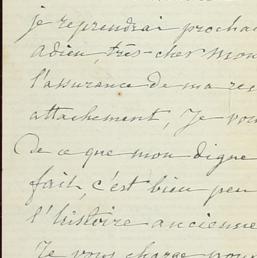 je reprendrai procha
adieu, très cher Mon
l'assurance de ma res
attachement, Je vou
De ce que mon digne
fait, c'est bien peu
l'histoire ancienne
Je vous charge pour